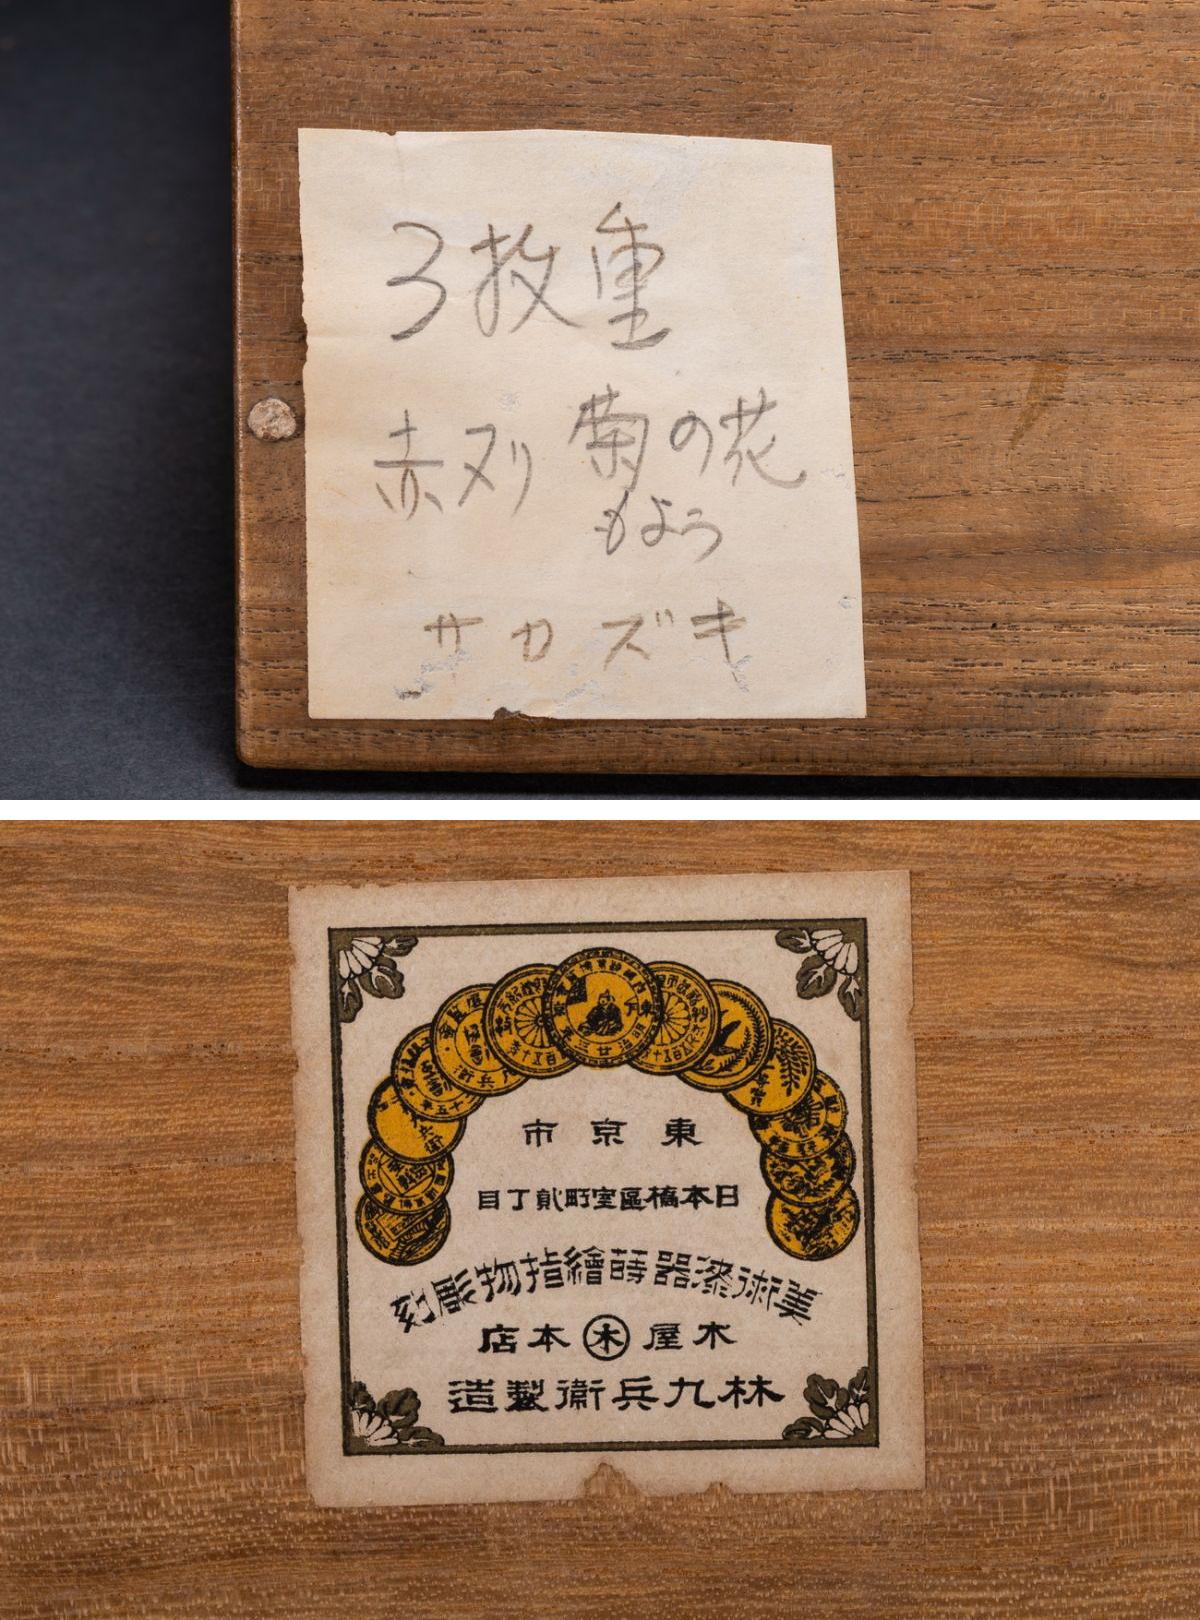 3枚重
赤ヌリ 菊の花
もよう
サカズキ
明治廿三
東京市
日本橋區室町貳丁目
美術漆器蒔繪指物彫刻
木屋 木 本店
林九兵衞製造